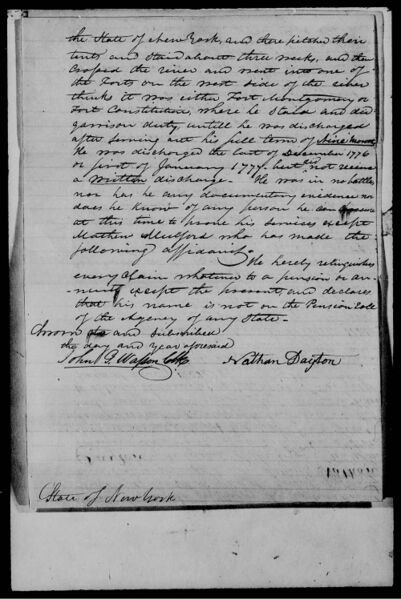 the State of New York, and there pitched their
tents and staid about three weeks, and then
crossed the river and went into one of
the Forts on the west side of the river
thinks it was either Fort Montgomery or
Fort Constitution, where he staid and did
garrison duty, untill he was discharged
after serving out his full term of Nine months
He was discharged the last of December 1776
or first of January 1777, but did not receive
a written discharge. He was in no battles
nor has he any documentary evidence nor
does he know of any person he can procure
at this time to prove his services except
Mathew Mulford who has made the
following affidavit. He hereby relinquishes
every claim whatever to a pension or an-
nuity except the present and declares
that his name is not on the Pension Roll
of the Agency of any State.
Sworn to and subscribed
the day and year aforesaid
John G. Wasson Clk Nathan Dayton
State of New York